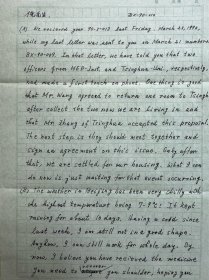 BX-90-010
(A). We received your 90-5-003 last Friday, March 23, 1990,
while my last letter was sent to you on March 21 numbered
BX-90-009. In that letter, we have told you that two
officers from and Tsinghua Uni, respectively,
had made a joint touch on phone. One thing is good
that Mr. Wang agreed to return and room to Tsinghua
after collect the two now we are living in and
that Mr. Zhang of Tsinghua accepted this proposal.
The next step is they should meet together and
sign an agreement on this issue. Only after
that, we are settled for our housing. What I can
do now is just waiting for that event occurring.
The weather in Beijing has been very chilly with
the highest temperature being 7-9°C! It kept
raining for about 10 days. Having a cold since
last week, I am still not in a good shape.
Anyhow, I can still work for whole day. By
now, I believe you have received the medicine
you need to your shoulder, hoping you